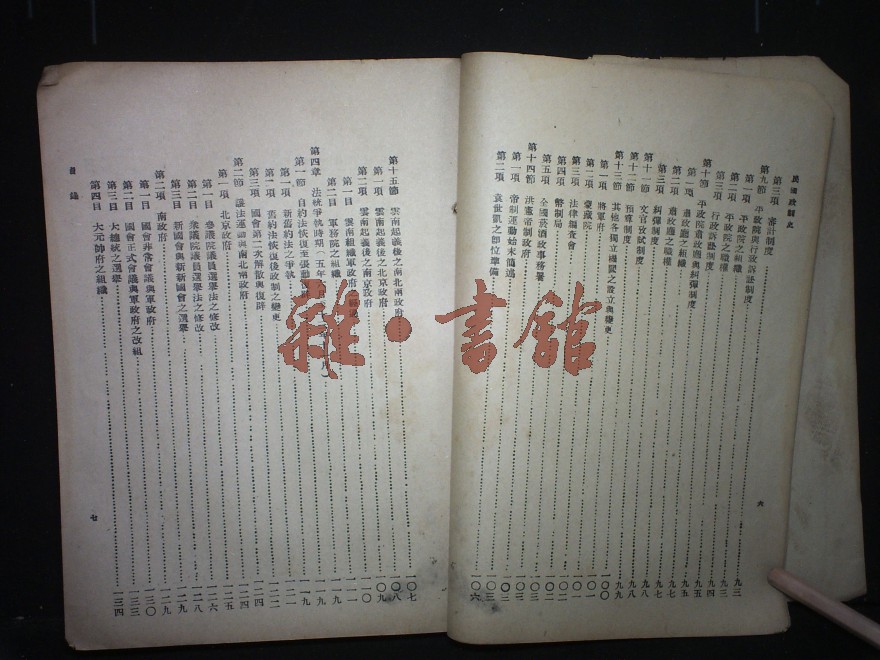 民國政制史
第三項 審計制度 九三
第九節 平政院與行政訴訟制度
第一項 平政院之組織
第二項 平政院之職權
第三項 行政訴訟制度
第十節 平政院肅政廳與糾彈制度
第一項 肅政廳之組織
第二項 肅政廳之職權
第三項 糾彈制度
第十一節 文官考試制度
第十二節 預算制度
第十三節 其他各獨立機關之設立與變更
第一項 將軍府
第二項 蒙藏院
第三項 法律編查會
第四項 幣制局
第五項 全國菸酒政事務署
第十四節 洪憲帝制政府
第一項 帝制運動始末簡述
第二項 袁世凱之卽位準備 一〇六
六
第十五節 雲南起義後之南北兩政府 一〇七
第一項 雲南起義後之北京政府 一〇八
第二項 雲南起義後之南京政府 一〇九
第一目 雲南組織軍政府之
第二目 軍務院之組織
第四章 法統爭執時期
第一節 自約法恢復至張勳
第一項 新舊約法之爭執
第二項 舊約法恢復後政制之變更
第三項 國會第二次解散與復辟 一二四
第二節 護法運動與南北兩政府 一二四
第一項 北京政府 一二五
第一目 參議院議員選舉法之修改 一二六
第二目 衆議院議員選舉法之修改 一二八
第三目 新國會與新新國會之選舉 一二九
第二項 南政府 一二九
第一目 國會非常會議與軍政府 一三〇
第二目 國會正式會議與軍政府之改組 一三三
第三目 大總統之選舉 一三三
第四目 大元帥府之組織 一三四
目錄
七
雜·書館